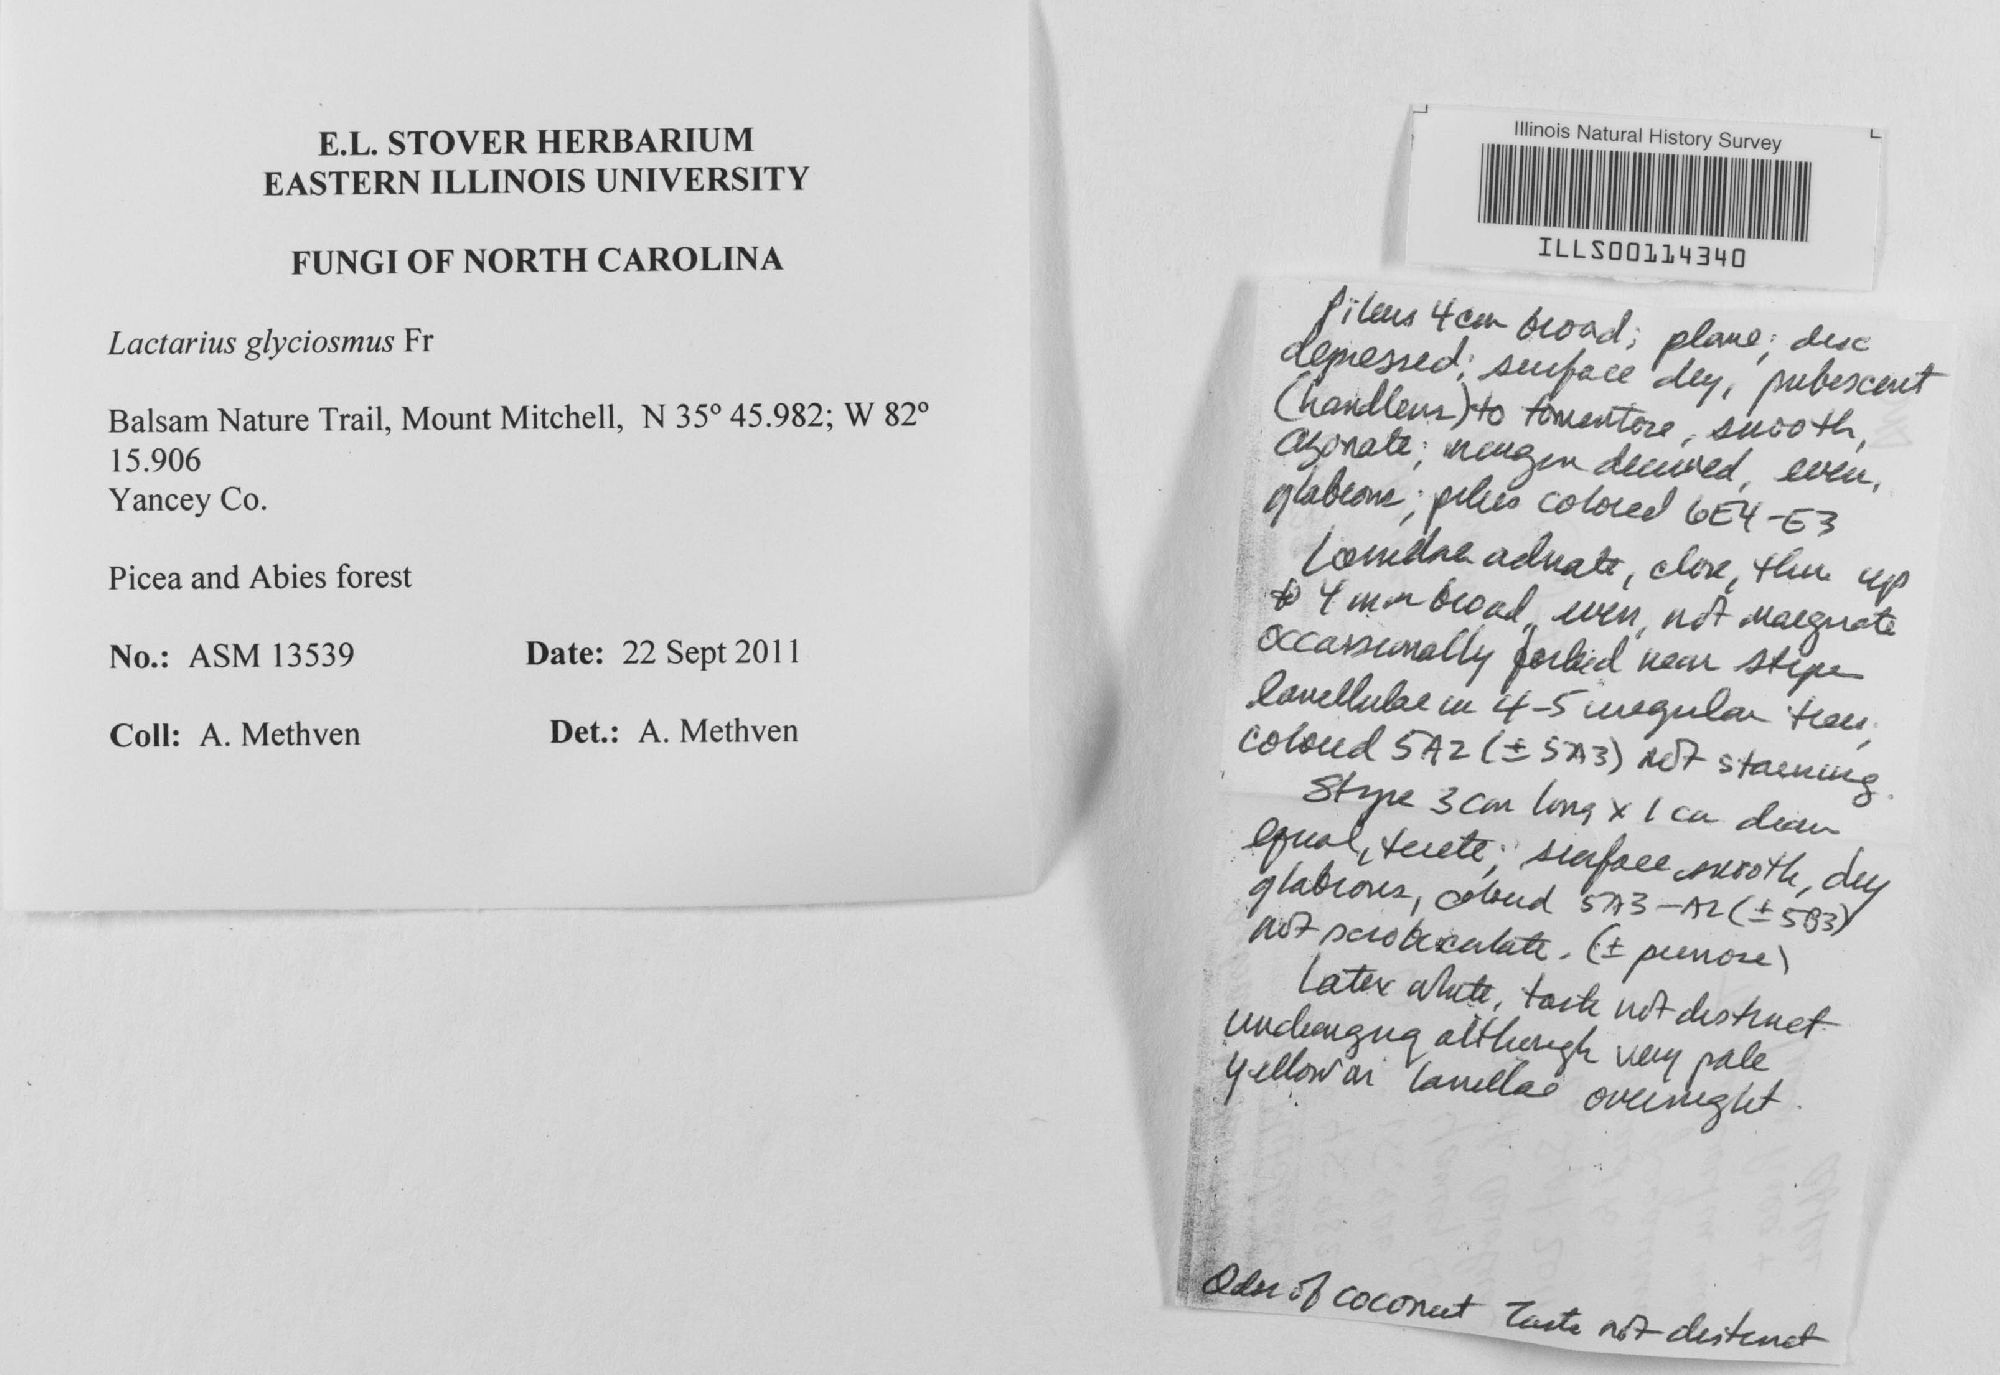 E.L. STOVER HERBARIUM
EASTERN ILLINOIS UNIVERSITY
FUNGI OF NORTH CAROLINA
Lactarius glyciosmus Fr
Balsam Nature Trail, Mount Mitchell, N 35º 45.982; W 82º
15.906
Yancey Co.
Picea and Abies forest
No.: ASM 13539 Date: 22 Sept 2011
Coll: A. Methven Det.: A. Methven
Illinois Natural History Survey
ILLS00114340
Pileus 4 cm broad; plane; disc
depressed; surface dry, pubescent
(handlens) to tomentose, smooth,
azonate; margin decurved, even,
glabrous; pileus colored 6E4-E3
Lamellae adnate, close, thin up
to 4 mm broad, even, not marginate
occassionally forked near stipe
lamellulae in 4-5 irregular tiers;
colored 5A2 (± 5A3) not staining.
Stipe 3 cm long x 1 cm diam
equal, terete; surface smooth, dry
glabrous, colored 5A3-A2 (± 5B3)
not scrobiculate. (± pruinose)
Latex white, taste not distinct
unchanging although very pale
yellow on lamellae overnight.
Odor of coconut Taste not distinct